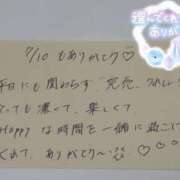 遊んでくれ
ありが
7/10 もありがとう♡
平日にも関わらず「完売」うれしい
っても凄くて、楽しくて、
Happy な時間を一緒に過ごして
くれて、ありがとう〜